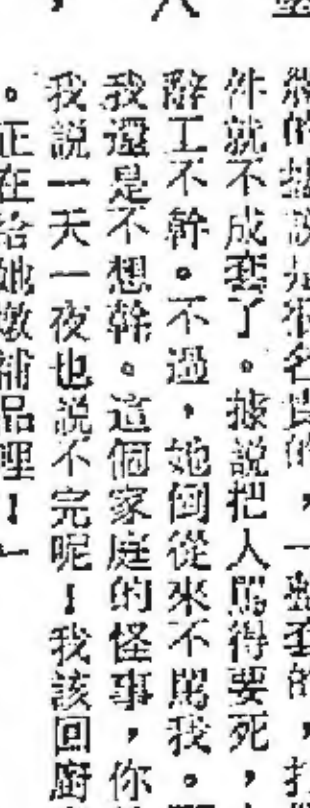 的據說是很名貴的，一整套的，打
件就不成套了。據說把人罵得要死，
辭工不幹。不過，她倒從來不罵我。
我還是不想幹。這個家庭的怪事，你
我說一天一夜也說不完呢！我該回廚
。正在給她燉補品哩！」